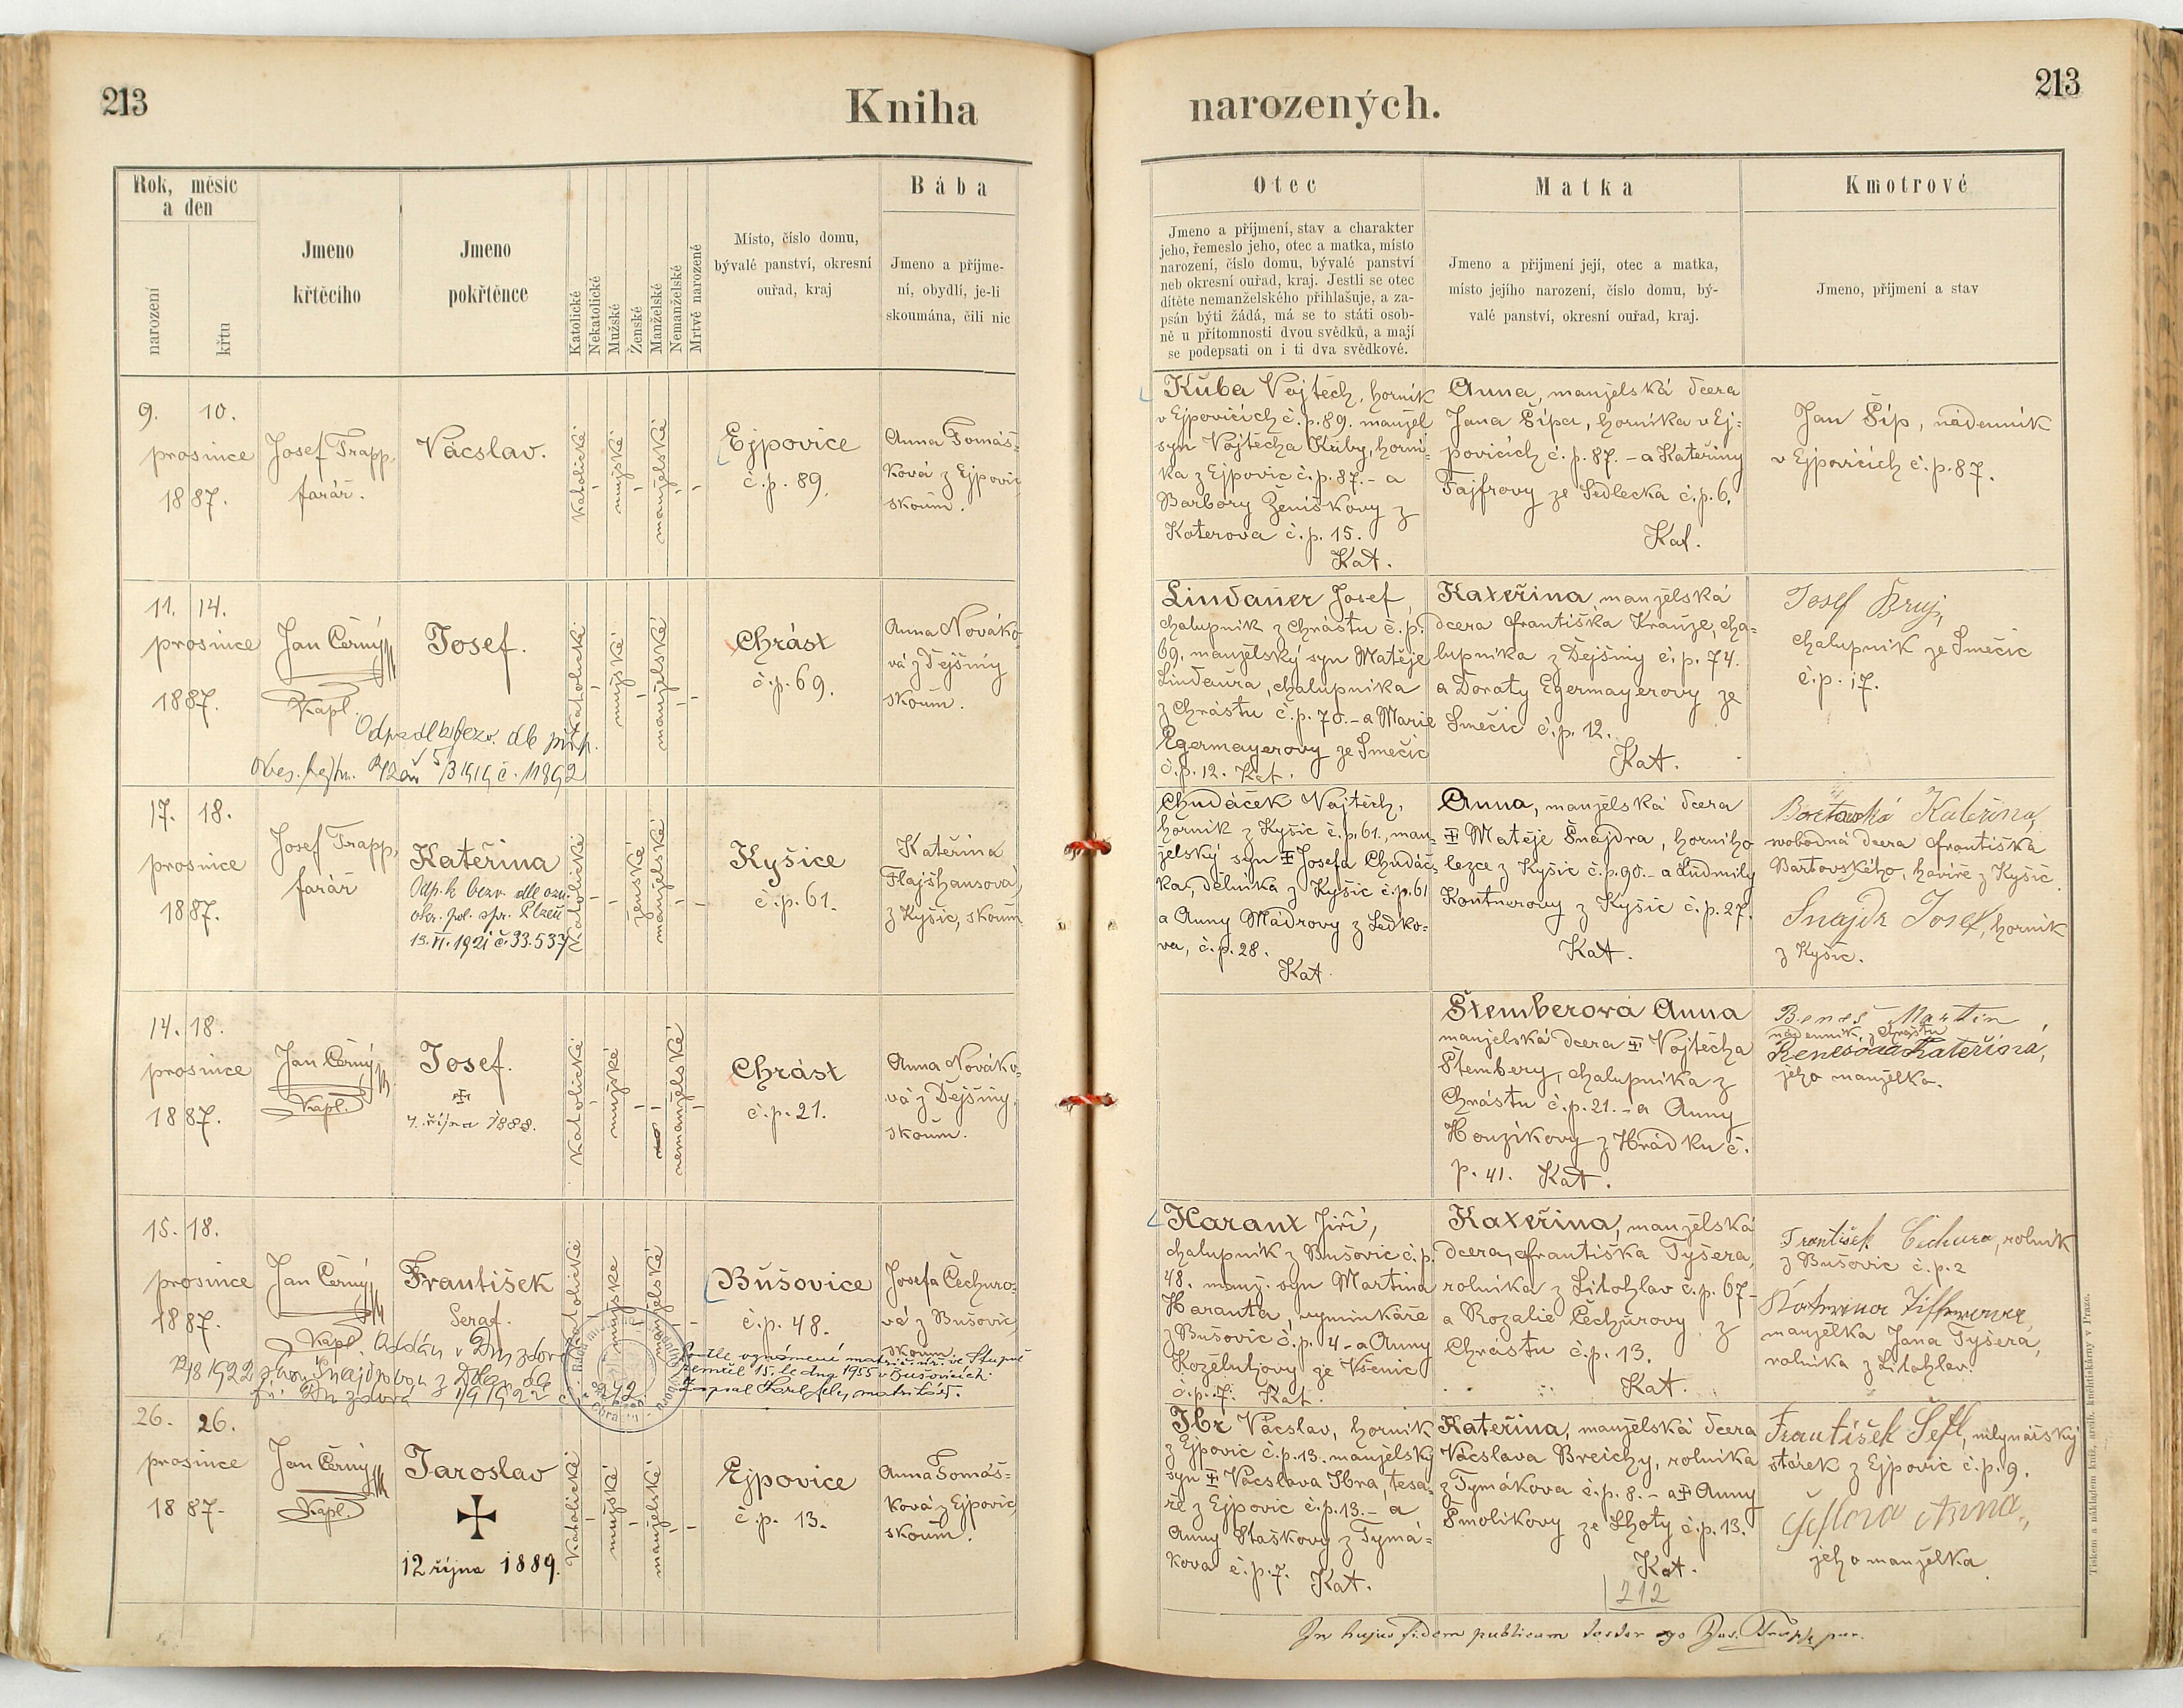 213
Kniha
narozených.
213
Rok, měsíc
a den
narození
křtu
Jmeno
křtěcího
Jmeno
pokřtěnce
Katolické
Nekatolické
Mužské
Ženské
Manželské
Nemanželské
Mrtvě narozené
Místo, číslo domu,
bývalé panství, okresní
ouřad, kraj
Bába
Jmeno a příjme-
ní, obydlí, je-li
skoumána, čili nic
Otec
Jmeno a příjmení, stav a charakter
jeho, řemeslo jeho, otec a matka, místo
narození, číslo domu, bývalé panství
neb okresní ouřad, kraj. Jestli se otec
dítěte nemanželského přihlašuje, a za-
psán býti žádá, má se to státi osob-
ně u přítomnosti dvou svědků, a mají
se podepsati on i ti dva svědkové.
Matka
Jmeno a příjmení její, otec a matka,
místo jejího narození, číslo domu, bý-
valé panství, okresní ouřad, kraj.
Kmotrové
Jmeno, příjmení a stav
9. 10.
prosince
1887.
Josef Trapp,
farář.
Vácslav.
Katolické
mužské
manželské
Ejpovice
č.p. 89.
Anna Tomáš-
ková z Ejpovic
skoum.
Kuba Vojtěch, horník
v Ejpovicích č.p. 89. manžel
syn Vojtěcha Kuby, horní-
ka z Ejpovic č.p. 87. - a
Barbory Ženíškovy z
Katerova č.p. 15.
Kat.
Anna, manželská dcera
Jana Šípa, horníka v Ej-
povicích č.p. 87. - a Kateřiny
Fajfrovy ze Sedlecka č.p. 6.
Kat.
Jan Šíp, nádenník
v Ejpovicích č.p. 87.
11. 14.
prosince
1887.
Jan Černý
Kapl.
Josef.
Katolické
mužské
manželské
Chrást
č.p. 69.
Anna Nováko-
vá z Dejšiny
skoum.
Lindauer Josef,
chalupník z Chrástu č.p.
69. manželský syn Matěje
Lindaura, chalupníka
z Chrástu č.p. 70. - a Marie
Egermayerovy ze Smečic
č.p. 12. Kat.
Kateřina, manželská
dcera Františka Krause, cha-
lupníka z Dejšiny č.p. 74.
a Doraty Egermayerovy ze
Smečic č.p. 12.
Kat.
Josef Bruj,
chalupník ze Smečic
č.p. 17.
17. 18.
prosince
1887.
Josef Trapp,
farář
Kateřina
Odp. k bezv. dle ozn.
okr. pol. spr. Plzeň
13.VI.1921 č. 33.537
Katolické
ženské
manželské
Kyšice
č.p. 61.
Kateřina
Flajšhansová,
z Kyšic, skoum
Chudáček Vojtěch,
horník z Kyšic č.p. 61., man-
želský syn Josefa Chudáč-
ka, dělníka z Kyšic č.p. 61
a Anny Mádrovy z Ledko-
va, č.p. 28.
Kat.
Anna, manželská dcera
Matěje Šnajdra, horního
lezce z Kyšic č.p. 90. - a Ludmily
Kontnerovy z Kyšic č.p. 27.
Kat.
Kateřina,
svobodná dcera Františka
Bartovského, havíře z Kyšic.
Snajdr Josef, horník
z Kyšic.
14. 18.
prosince
1887.
Jan Černý
Kapl.
Josef.
7. října 1888.
Katolické
mužské
nemanželské
Chrást
č.p. 21.
Anna Nováko-
vá z Dejšiny,
skoum.
Štemberová Anna
manželská dcera Vojtěcha
Štembery, chalupníka z
Chrástu č.p. 21. - a Anny
Houzíkovy z Hrádku č.
p. 41. Kat.
Beneš Martin
nádenník z Chrástu
Benešová Kateřina,
jeho manželka.
15. 18.
prosince
1887.
Jan Černý
Kapl.
František
Seraf.
Katolické
mužské
manželské
Bušovice
č.p. 48.
Josefa Čechuro-
vá z Bušovic,
skoum.
Podle oznámení
zemřel 15. 1955 v Bušovicích.
Zapsal
Harant Jiří,
chalupník z Bušovic č.p.
48. manž. syn Martina
Haranta, výminkáře
z Bušovic č.p. 4 - a Anny
Koželuhovy ze Všenic
č.p. 7. Kat.
Kateřina, manželská
dcera, Františka Tyšera,
rolníka z Litohlav č.p. 67-
a Rozalie Čechurovy z
Chrástu č.p. 13.
Kat.
František Čechura, rolník
z Bušovic č.p. 2
manželka Jana Tyšera,
rolníka z Litohlav.
26. 26.
prosince
1887.
Jan Černý
Kapl.
Jaroslav
12 října 1889.
Katolické
mužské
manželské
Ejpovice
č.p. 13.
Anna Tomáš-
ková z Ejpovic,
skoum.
Ibr Vácslav, horník
z Ejpovic č.p. 13. manželský
syn Vácslava Ibra, tesa-
ře z Ejpovic č.p. 13. - a
Anny Staškovy z Tymá-
kova č.p. 7. Kat.
Kateřina, manželská dcera
Vácslava Breichy, rolníka
z Tymákova č.p. 8. - a Anny
Smolíkovy ze Lhoty č.p. 13.
Kat.
212
František Šefl, mlynářský
stárek z Ejpovic č.p. 9.
Šeflova Anna,
jeho manželka.
In hujus fidem publicam testor ego Jos. Trapp par.
Tiskem a nákladem kníž. arcib. knihtiskárny v Praze.